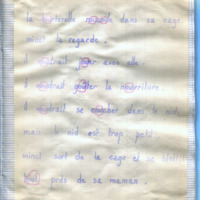 la tourterelle roucoule dans sa cage
minet la regarde.
il voudrait jouer avec elle.
il voudrait goûter la nourriture.
il voudrait se coucher dans le nid
mais le nid est trop petit.
minet sort de la cage et se blottit
tout près de sa maman.